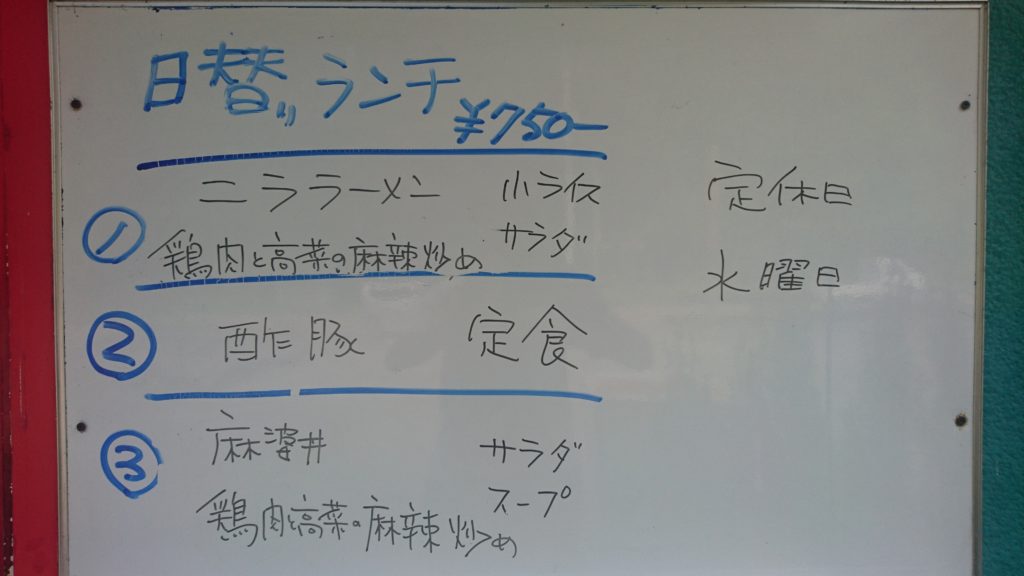 日替りランチ
¥750-
① ニララーメン 小ライス
鶏肉と高菜の麻辣炒め サラダ
② 酢豚 定食
③ 麻婆丼 サラダ
スープ
鶏肉と高菜の麻辣炒め
定休日
水曜日